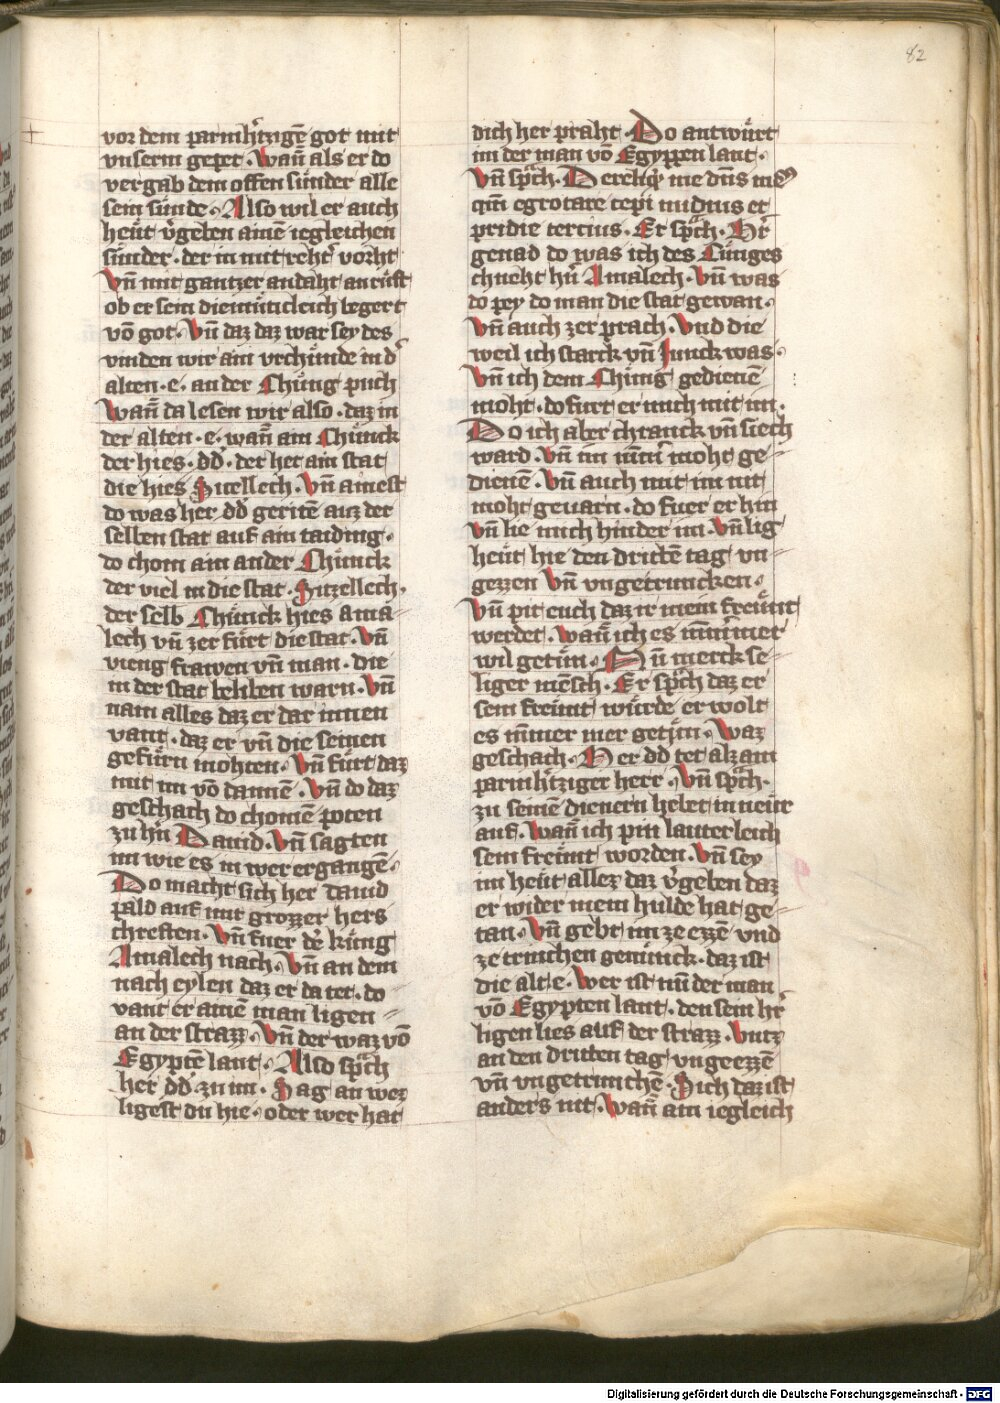 82
vor dem parmh'tzigē got mit
vnserm gepet · Wañ als er do
vergab dem offen sünder alle
sein sünde · Also wil er auch
heüt v'geben ainē iegleichen
sünder · der in mit reht' vorht
Vñ mit gantzer andaht an rüfft
ob er sein diemüticleich begert
vō got · Vñ daz daz war sey des
vinden wir ain vrchünde in d'
alten · e · an der Chüng puch
Wañ da lesen wir also · daz in
der alten · e · wañ ain Chünck
der hies · dd · der het ain stat
die hies Sitellech · Vñ ainest
do was her dd geritē auz der
selben stat auf ain taiding ·
do chom ain ander Chünck
der viel in die stat · Sizellech ·
der selb Chünck hies ama
lech vñ zer fürt die stat · Vñ
vieng frawen vñ man · die
in der stat beliben warn · Vñ
nam alles daz er dar innen
vant · daz er vñ die seinen
gefürn mohten · Vñ fürt daz
mit im vō dannē · Vñ do daz
geschach do chomē poten
zu h'n Dauid · Vñ sagten
im wie es in wer ergangē ·
Do macht sich her dauid
pald auf mit grozzer hers
chreften · Vñ fuer dē küng
Amalech nach · Vñ an dem
nach eylen daz er da tet · do
vant er ainē man ligen
an der strazz · Vñ der waz vō
Egyptē lant · Also sp̄ch
her dd zu im · Sag an wez
ligest du hie · oder wer hat
dich her praht · Do antwürt
im der man vō Egyppen lant ·
Vñ sp̄ch · Dereliq' me dn̄s me9
qm̄ egrotare cepi nudius et
pridie tercius · Er sp̄ch · H'r
genad do was ich des Cüniges
chneht h'n Amalech · Vñ was
do pey do man die stat gewan ·
Vñ auch zer prach · Vnd die
weil ich starck vñ Junck was ·
Vñ ich dem Chüng gedienē
moht · do furt er mich mit im ·
Do ich aber chranck vñ siech
ward · Vñ im nim̄' moht ge
dienē · Vñ auch mit im nit
moht geuarn · do fuer er hin
Vñ lie mich hinder im · Vñ lig
heüt hie den drittē tag vn
gezzen Vñ vngetruncken ·
Vñ pit euch daz ir mein freünt
werdet · Wañ ich es nim̄'met
wil getün · Nu merck se
liger mēsch · Er sp̄ch daz er
sein freünt würde er wolt
es nimmer mer getün · Waz
geschach · Her dd tet alz ain
parmh'tziger herr · Vñ sp̄ch ·
zu seinē dienern hebet in neür
auf · Wañ ich pin lauterleich
sein freünt worden · Vñ sey
im heüt allez daz v'geben daz
er wider mein hulde hat ge
tan · Vñ gebt im ze ezzē vnd
ze trinchen genünck · daz ist
die alt · e · Wer ist nū der man
vō Egypten lant · den sein h'r
ligen lies auf der strazz · Vntz
an den dritten tag vngeezzē
vñ vngetrunchē · Sich daz ist
anders nit · Wañ ain iegleich
Digitalisierung gefördert durch die Deutsche Forschungsgemeinschaft - DFG